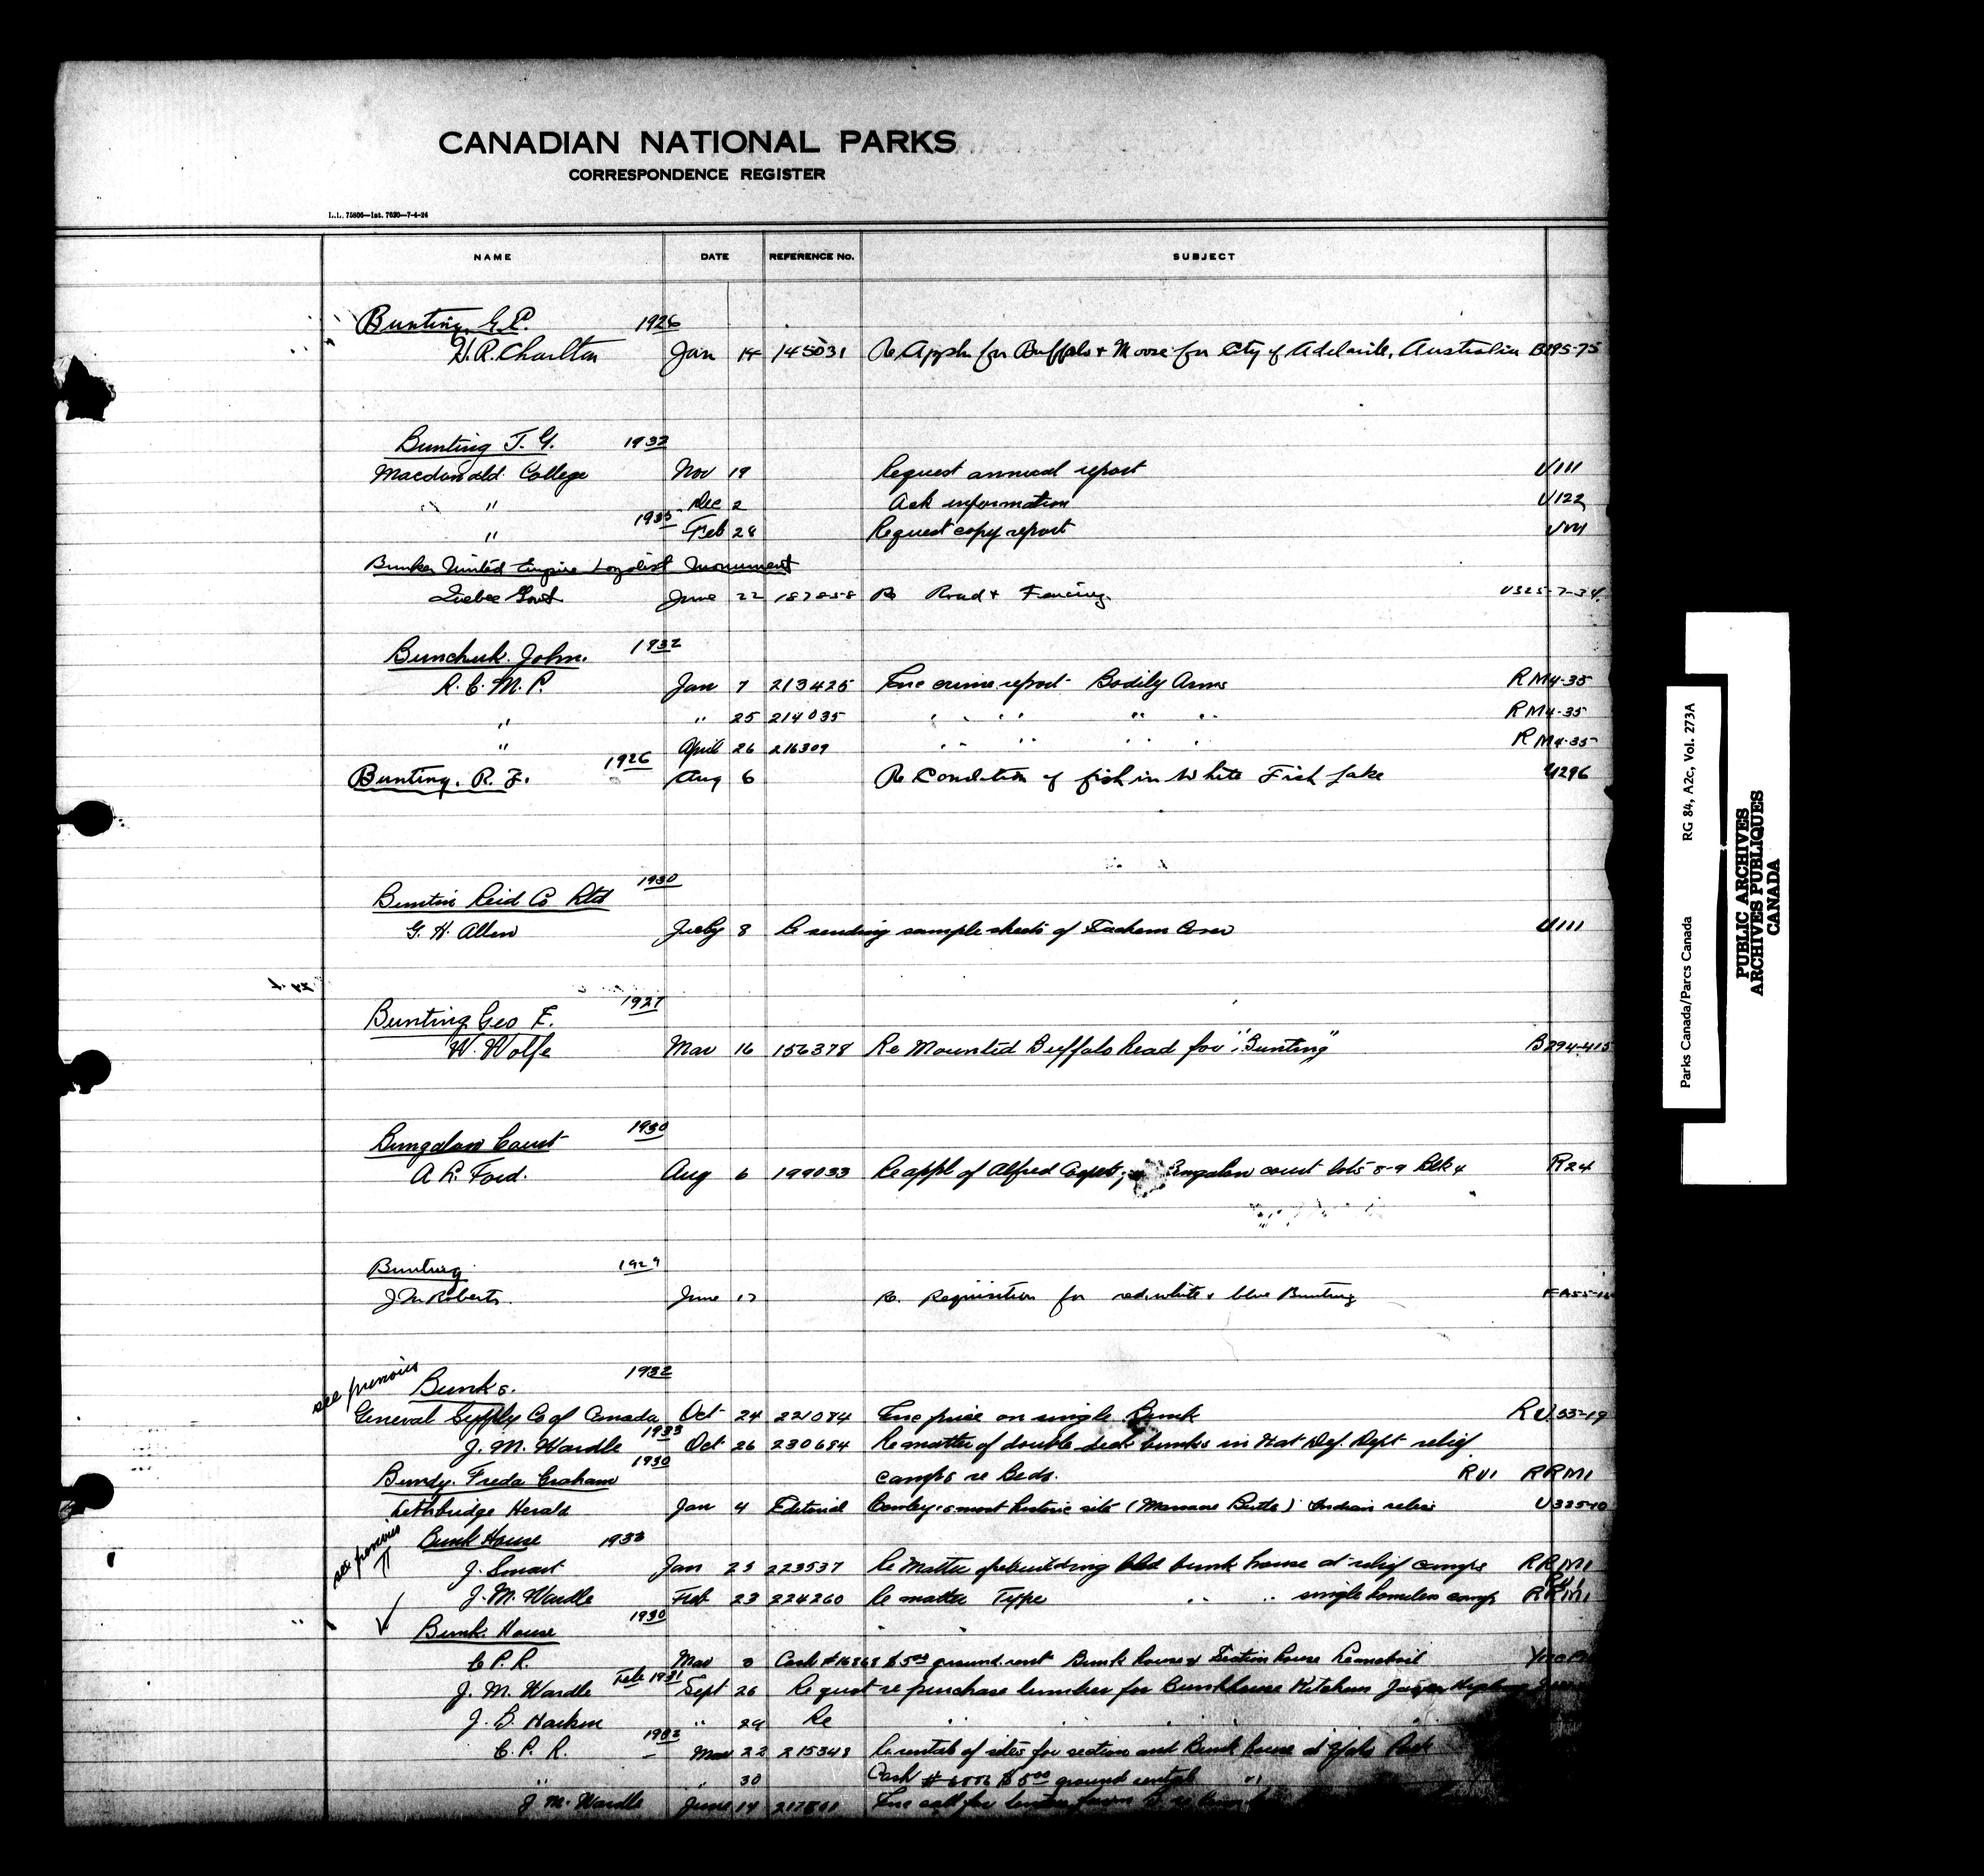 CANADIAN NATIONAL PARKS
CORRESPONDENCE REGISTER
L.L. 75806—Int. 7620—7-4-24
NAME DATE REFERENCE No. SUBJECT
Bunting, G.E. 1926
H.R. Charlton Jan 14 145031 Re Appln for Buffalo + Moose for City of Adelaide, Australia B295-75
Bunting T. G. 1932
Macdonald College Nov 19 Request annual report U111
" Dec 2 Ask information U122
1935
" Feb 28 Request copy report
Bunker United Empire Loyalist Monument
Quebec Govt June 22 Re Road + Fencing
Bunchuk. John. 1932
R.C.M.P. Jan 7 213425 Enc crime report Bodily Arms RM4-35
" " 25 214035 " " " " RM4-35
" April 26 216309 " " " " RM4-35
Bunting. R. F. 1926 Aug 6 Re Condition of fish in White Fish Lake U296
Buntin Reid Co Ltd 1930
G. H. Allen July 8 Re sending sample sheets of Cover U111
Bunting Geo E. 1927
W. Wolfe Mar 16 156378 Re Mounted Buffalo head for "Bunting" B294-415
Bungalow Court 1930
A L. Ford. Aug 6 199033 Re appl of Alfred Bungalow court lots 8-9 Blk 4 R24
Bunting 1929
J M Roberts. June 17 Re. Requisition for red, white & blue Bunting
see previous
Bunks. 1932
General Supply Co of Canada Oct 24 221084 Enc price on single Bunk
1933
J. M. Wardle Oct 26 230684 Re matter of double deck bunks in Nat Def. Dept relief
camps re beds. RU1 RRM1
Bundy. Freda Graham 1930
Lethbridge Herald Jan 4 Editorial Cowley's most historic site Indian
see previous
Bunk House 1933
J. Smart Jan 23 223537 Re Matter of rebuilding bunk house at relief camps RRM1
J. M. Wardle Feb 23 224260 Re matter Type " " single homeless camps RRM1
Bunk House 1930
C.P.R. Mar Cash $5.00 ground rent Bunk house & Section house
Feb 1931
J. M. Wardle Sept 26 Request re purchase lumber for Bunkhouse Kitchens
J. B. Harkin " 29 Re " " "
1932
C. P. R. Mar 22 215348 Re rental of sites for section and Bunk house at
" " 30 Cash $5.00 ground rental "
J. M. Wardle June 14 Enc call for
Parks Canada/Parcs Canada RG 84, A2c, Vol. 273A
PUBLIC ARCHIVES
ARCHIVES PUBLIQUES
CANADA